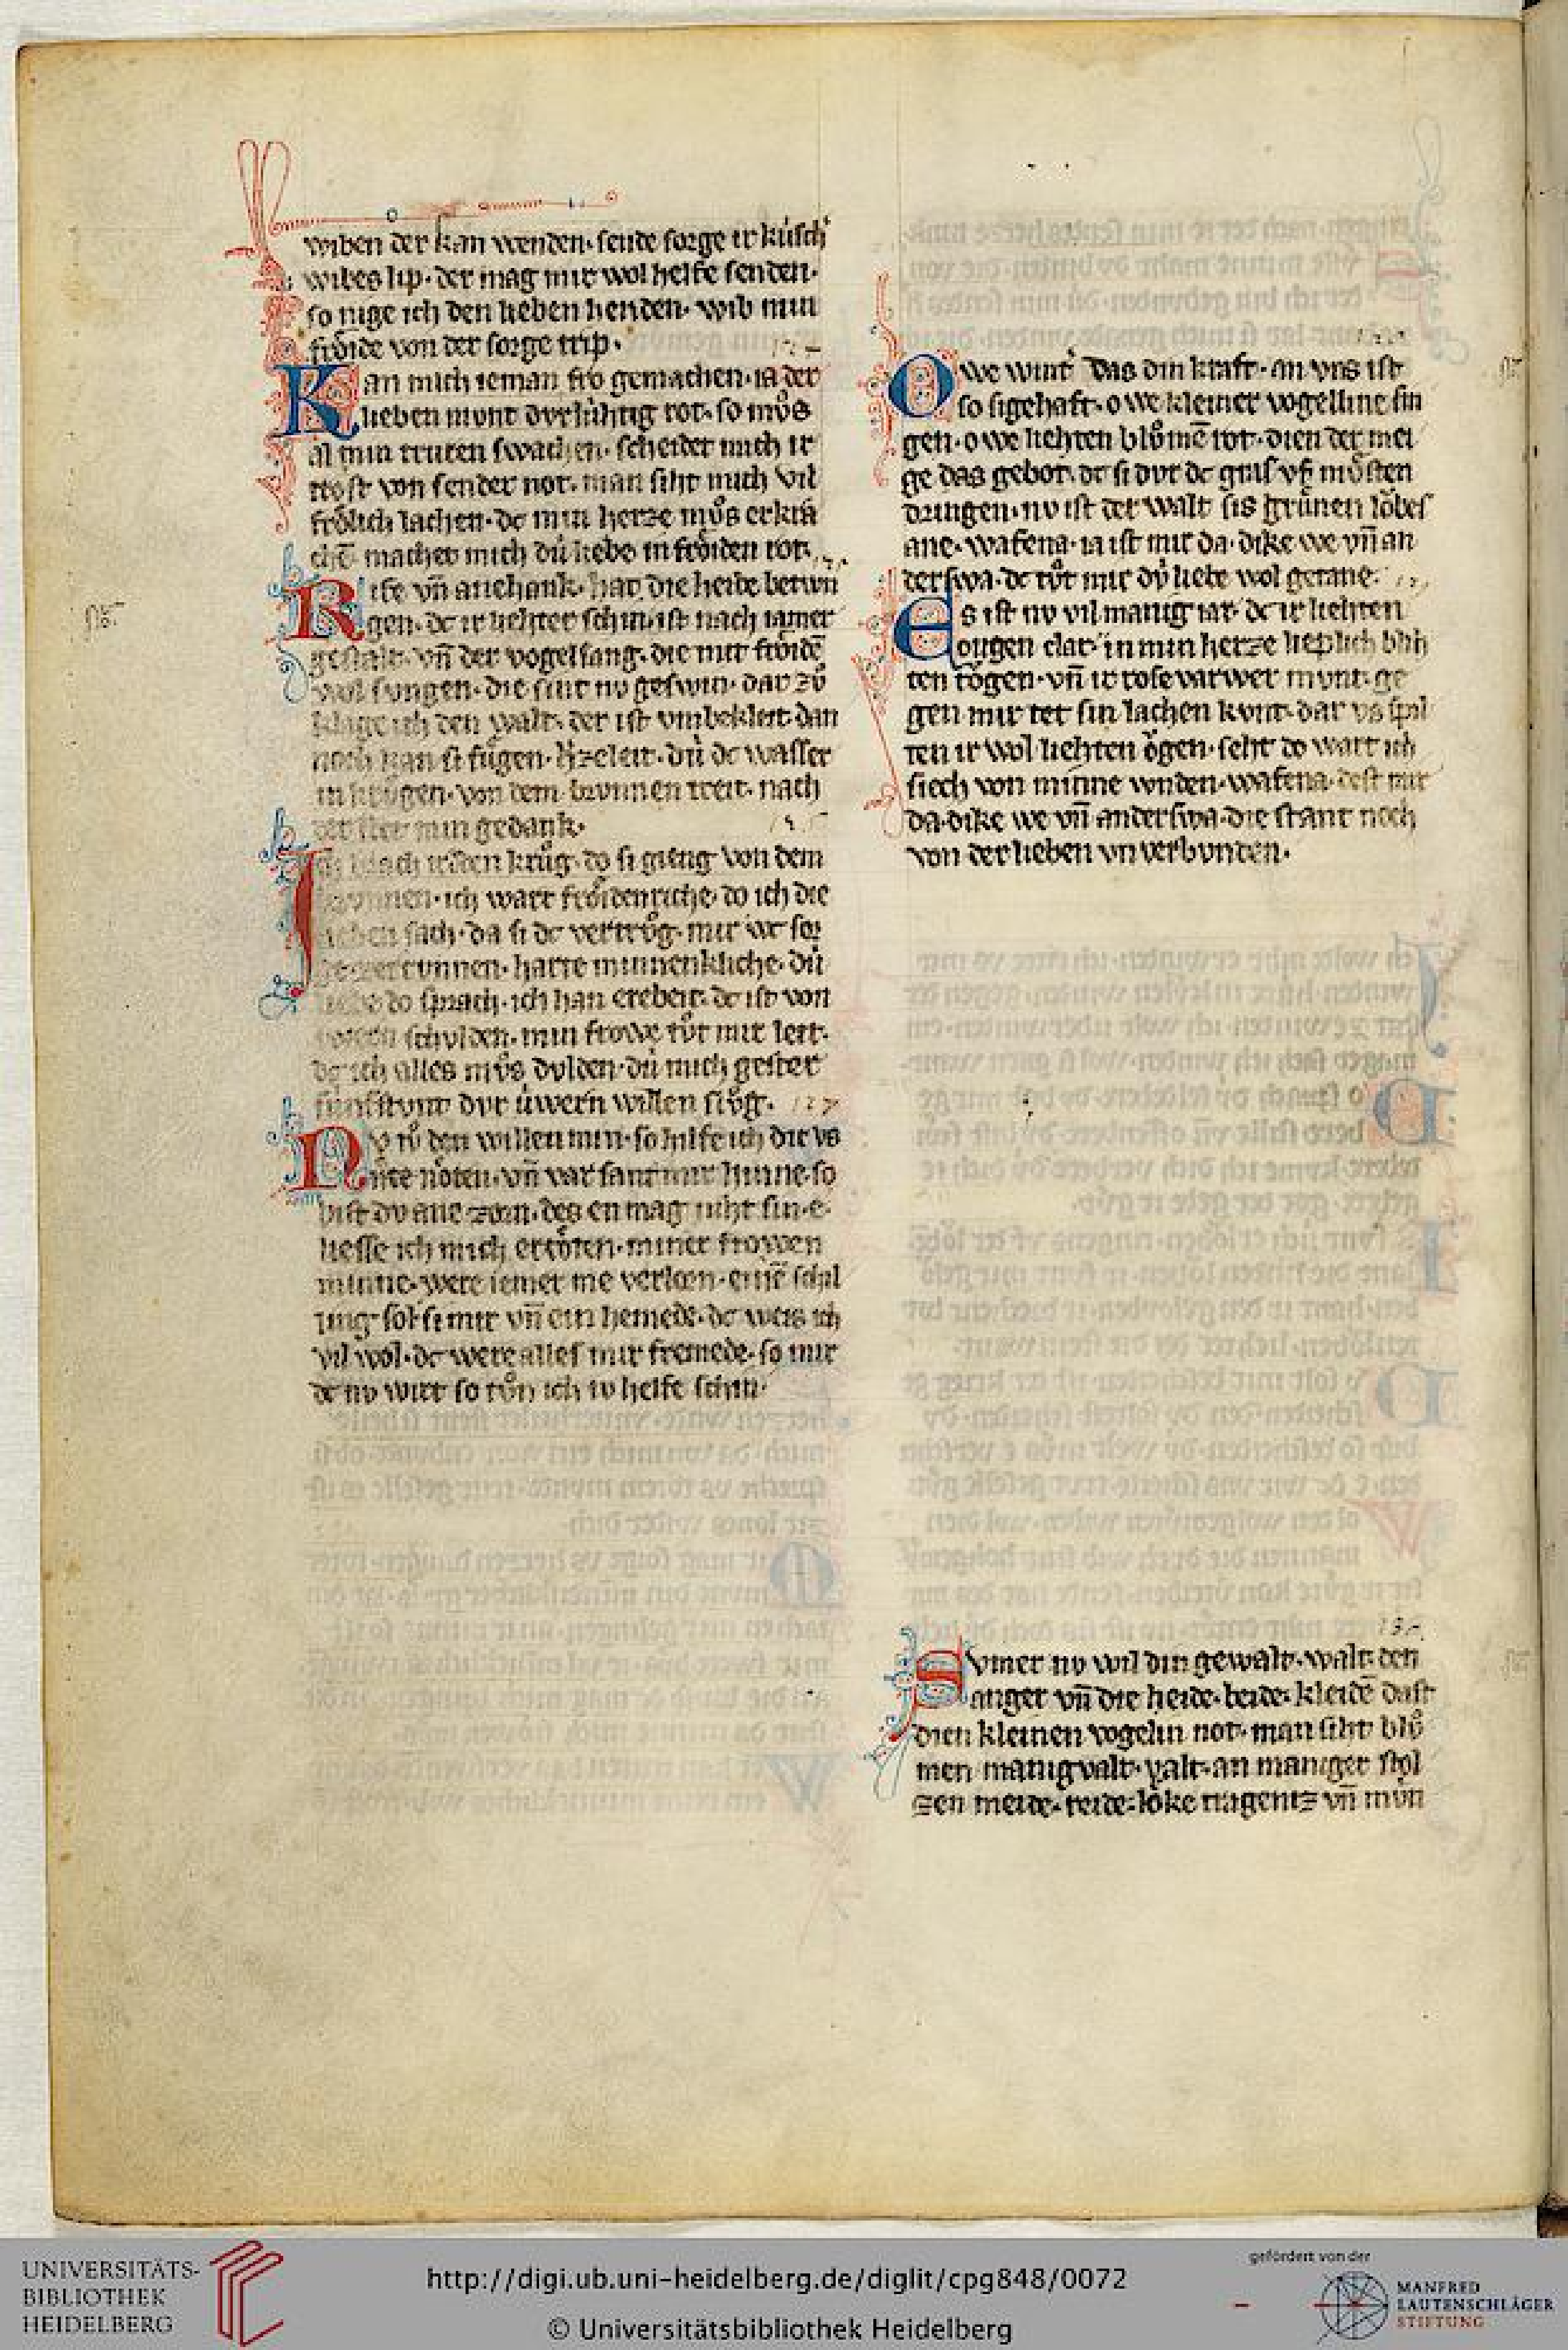 wiben der kan wenden· sende sorge ir kúsch
wibes lip· der mag mir wol helfe senden·
so nige ich den lieben henden· wib min
froͤide von der sorge trip·
Kan mich ieman fro gemachen· ia der
lieben mvnt dvrlúhtig rot· so mvͦs
al min truren swachen· scheidet mich ir
trost von sender not· man siht mich vil
froͤlich lachen· dc min herze mvͦs erkra
chē machet mich dú liebe in froͤiden rot·
Rife vn̄ anehank· hat die heide betwn
gen· dc ir liehter schin· ist nach iamer
gestalt· vn̄ der vogel sang· die mit froͤidē
wol svngen· die sint nv geswin· dar zvͦ
klage ich den walt· der ist vmbekleit· dan
noch kan si fuͤgen· h'zeleit· dú dc wasser
in kruͤgen· von dem brvnnen treit· nach
der stet min gedank·
Ich brach ir den kruͦg· do si gieng von dem
brvnnen· ich wart froͤidenriche· do ich die
lieben sach· da si dc vertrvͦg· mir wc sor
ge zerrvnnen· harte minnenkliche· dú
liebe do sprach· ich han erebeit· dc ist von
úwern schvlden· min frowe tvͦt mir leit·
dc ich alles mvͦs dvlden· dú mich gester
fúnfstvnt dvr úwern willen slvͦg·
Nv tvͦ den willen min· so hilfe ich dir vs
noͤten· vn̄ var sant mir hinne· so
bist dv ane zorn· des en mag niht sin· e·
liesse ich mich ertoͤten· miner frowen
minne· were iemer me verlorn· einē schil
ling sol si mir vn̄ ein hemede· dc weis ich
vil wol· dc were alles mir fremede· so mir
dc nv wirt so tvͦn ich iv helfe schin·
Owe wint̾ das din kraft· an vns ist
so sigehaft· owe kleiner vogelline sin
gen· owe liehten bluͦmē rot· dien der mei
ge das gebot· dc si dvr dc gras vf mvͦsten
dringen· nv ist der walt sis gruͤnen loͮbes
ane· wafena· ia ist mir da· dike we vn̄ an
derswa· dc tvͦt mir dv́ liebe wol getane·
Es ist nv vil manig iar· dc ir liehten
oͮgen clar· in min herze lieplich blik
ten toͮgen· vn̄ ir rosevarwer mvnt· ge
gen mir tet sin lachen kvnt· dar vs spil
ten ir wol liehten oͮgen· seht do wart ich
siech von minne wnden· wafena· dest mir
da· dike we vn̄ anderswa· die stant noch
von der lieben vnverbvnden·
130
Svmer nv wil din gewalt· walt· den
anger vn̄ die heide· beide· kleidē dast
dien kleinen vogelin not· man siht bluͦ
men manigvalt· valt· an maniger stol
zen meide· reide· loͤke tragents vn̄ mvn
UNIVERSITÄTS-
BIBLIOTHEK
HEIDELBERG
http://digi.ub.uni-heidelberg.de/diglit/cpg848/0072
© Universitätsbibliothek Heidelberg
gefördert von der
MANFRED
LAUTENSCHLÄGER
STIFTUNG